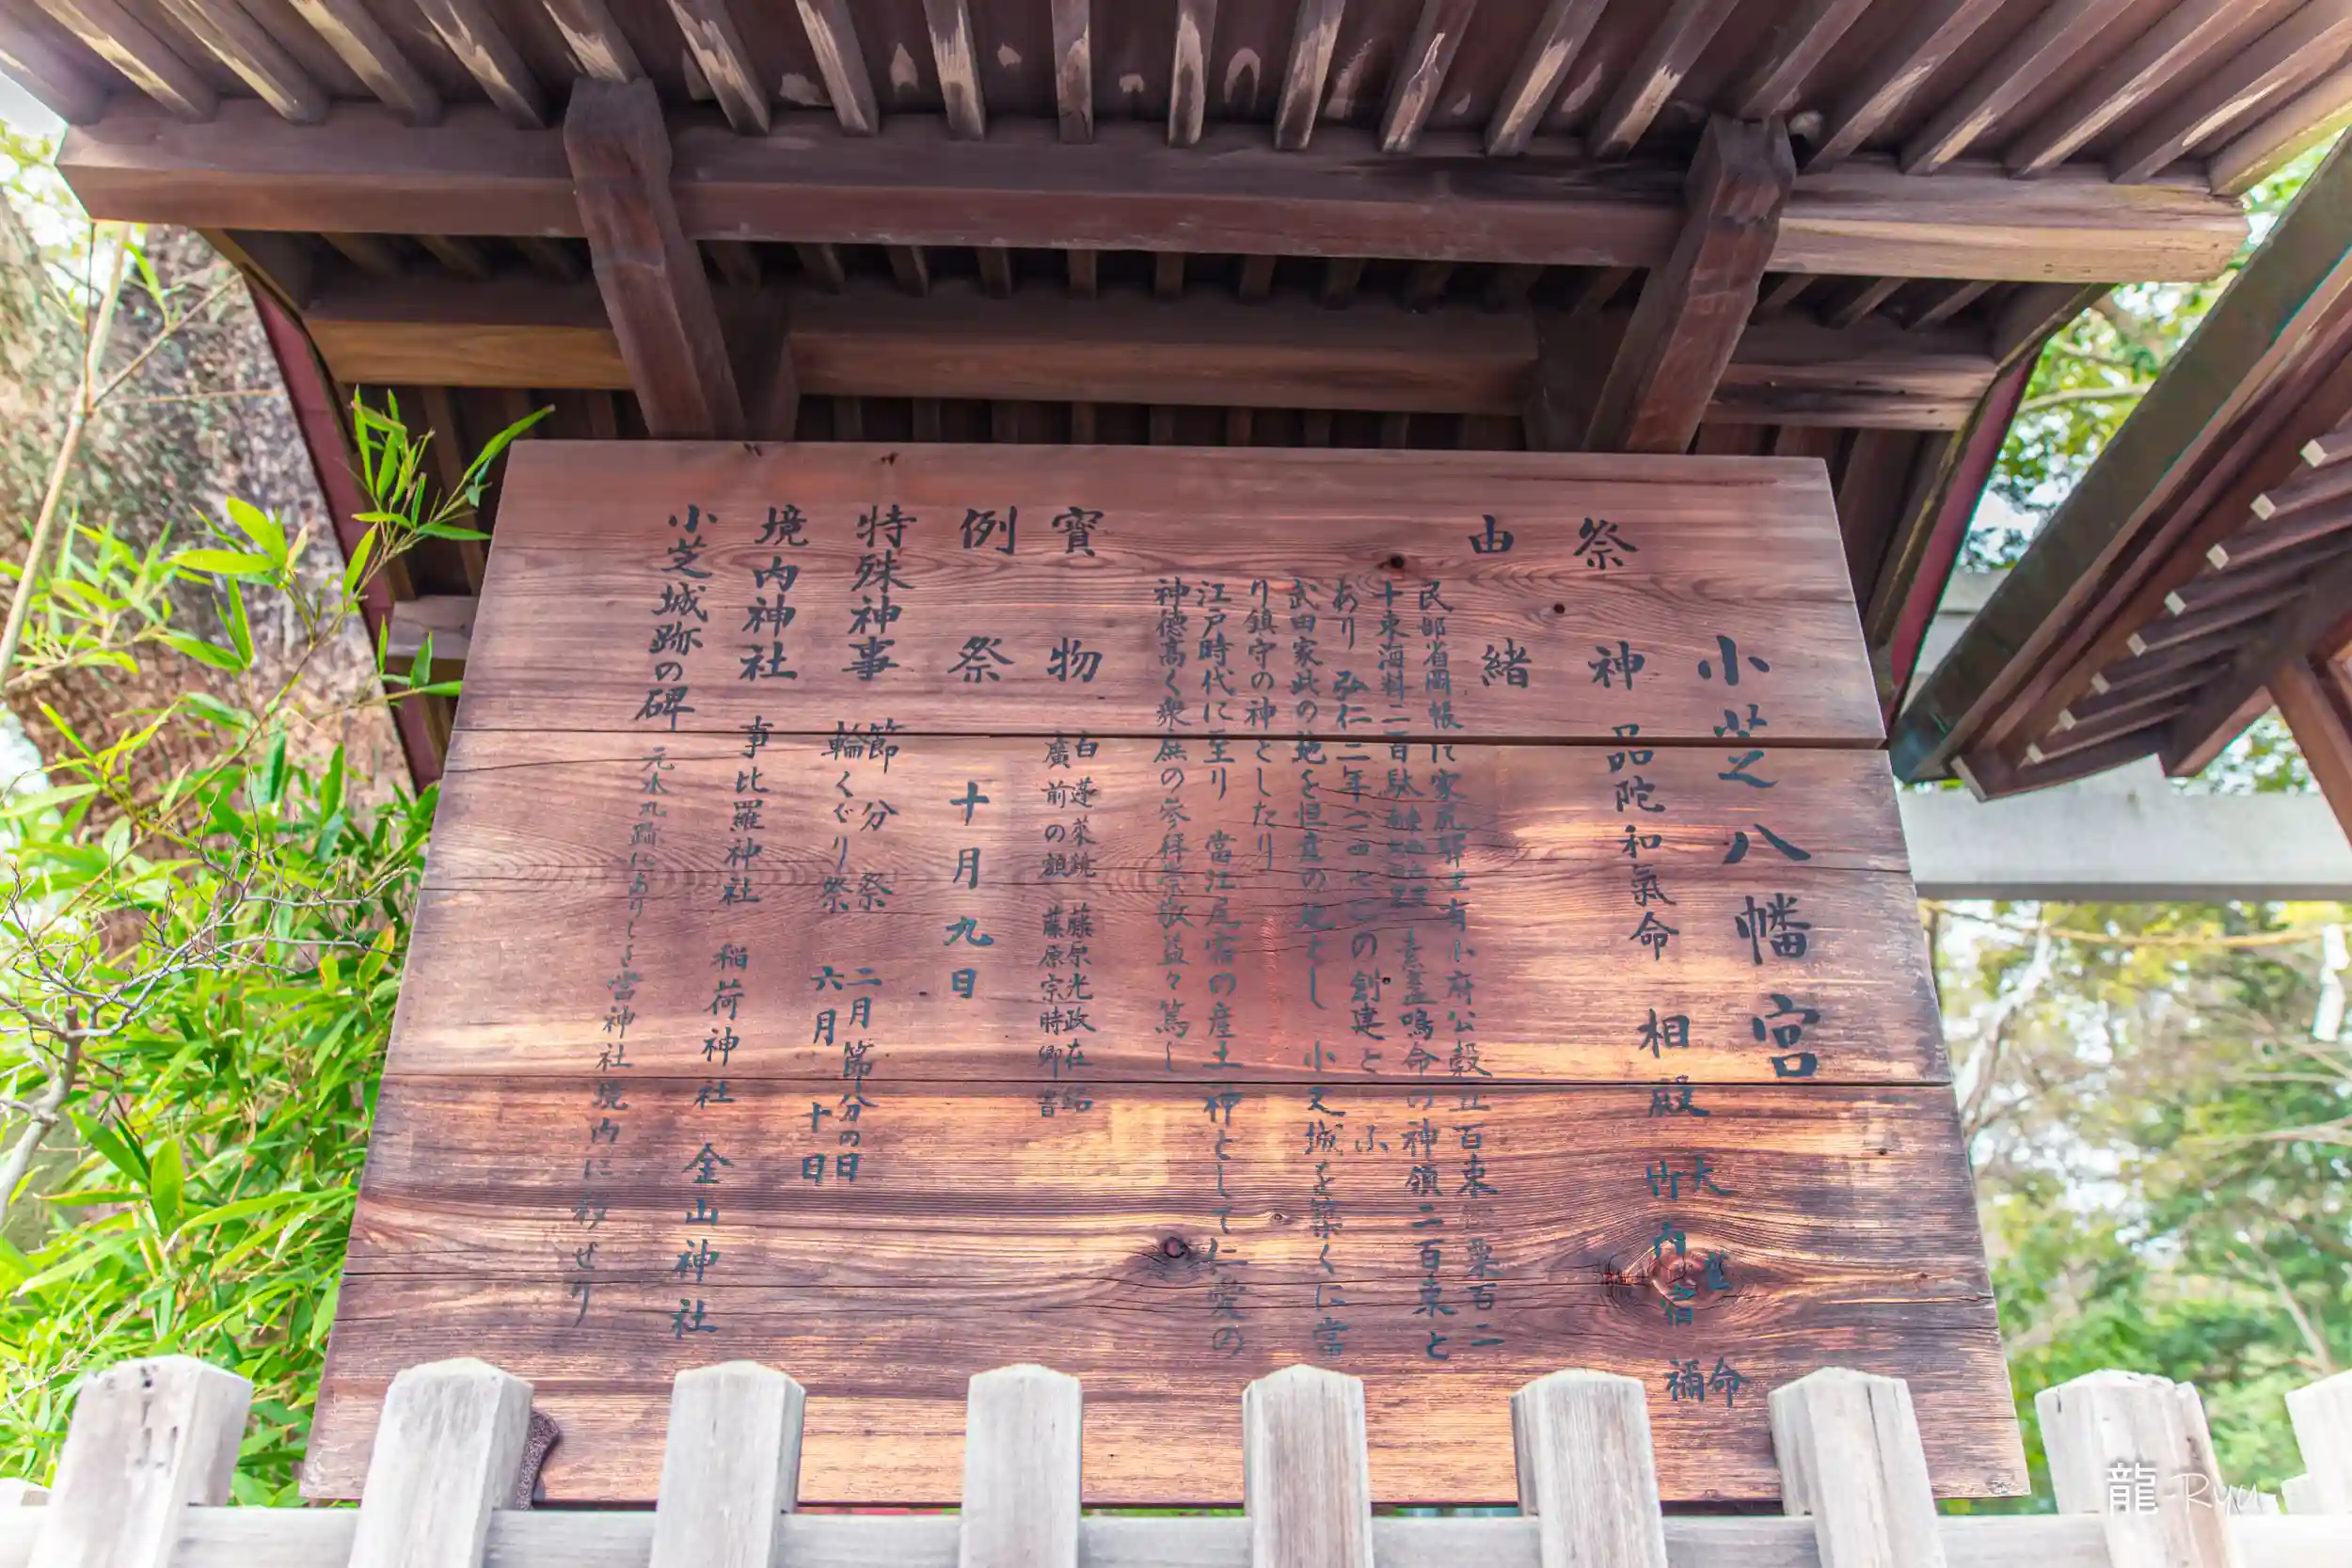 小芝八幡宮
祭神 品陀和氣命 相殿
天 命
竹内宿禰
由緒
民部省図帳に家尻驛 有小府公穀 百束 粟百二
十束海料二百駄 素盞嗚命の神領二百束と
あり 弘仁二年 の創建と ふ
武田家此の地を の地とし 小芝城を築くに当
り鎮守の神としたり
江戸時代に至り 當江尻宿の産土神として仁愛の
神徳高く衆庶の参拝崇敬益々篤し
寳物
白蓮 藤原光政在銘
廣前の額 藤原宗時卿書
例祭 十月九日
特殊神事
節分祭 二月節分の日
輪くぐり祭 六月十日
境内神社 事比羅神社 稲荷神社 金山神社
小芝城跡の碑 元水丸跡にありしを當神社境内に移せり
龍 Ryu